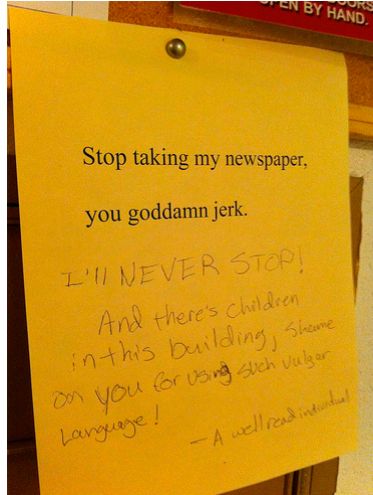 OPEN BY HAND.
Stop taking my newspaper,
you goddamn jerk.
I'll NEVER STOP!
And there's children
in this building, shame
on you for using such vulgar
Language!
- A well read individual